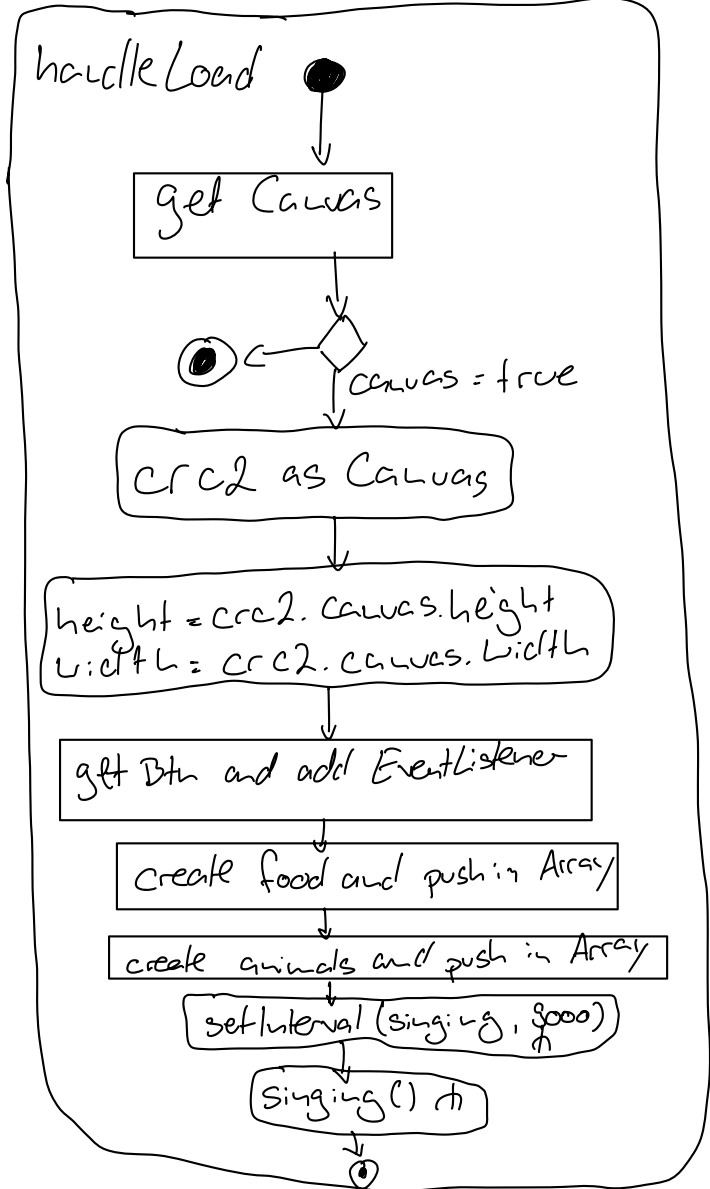 handleLoad
get Canvas
canvas = true
crc2 as Canvas
height = crc2.canvas.height
width = crc2.canvas.width
get Btn and add EventListener
create food and push in Array
create animals and push in Array
setInterval (singing, 000)
singing()